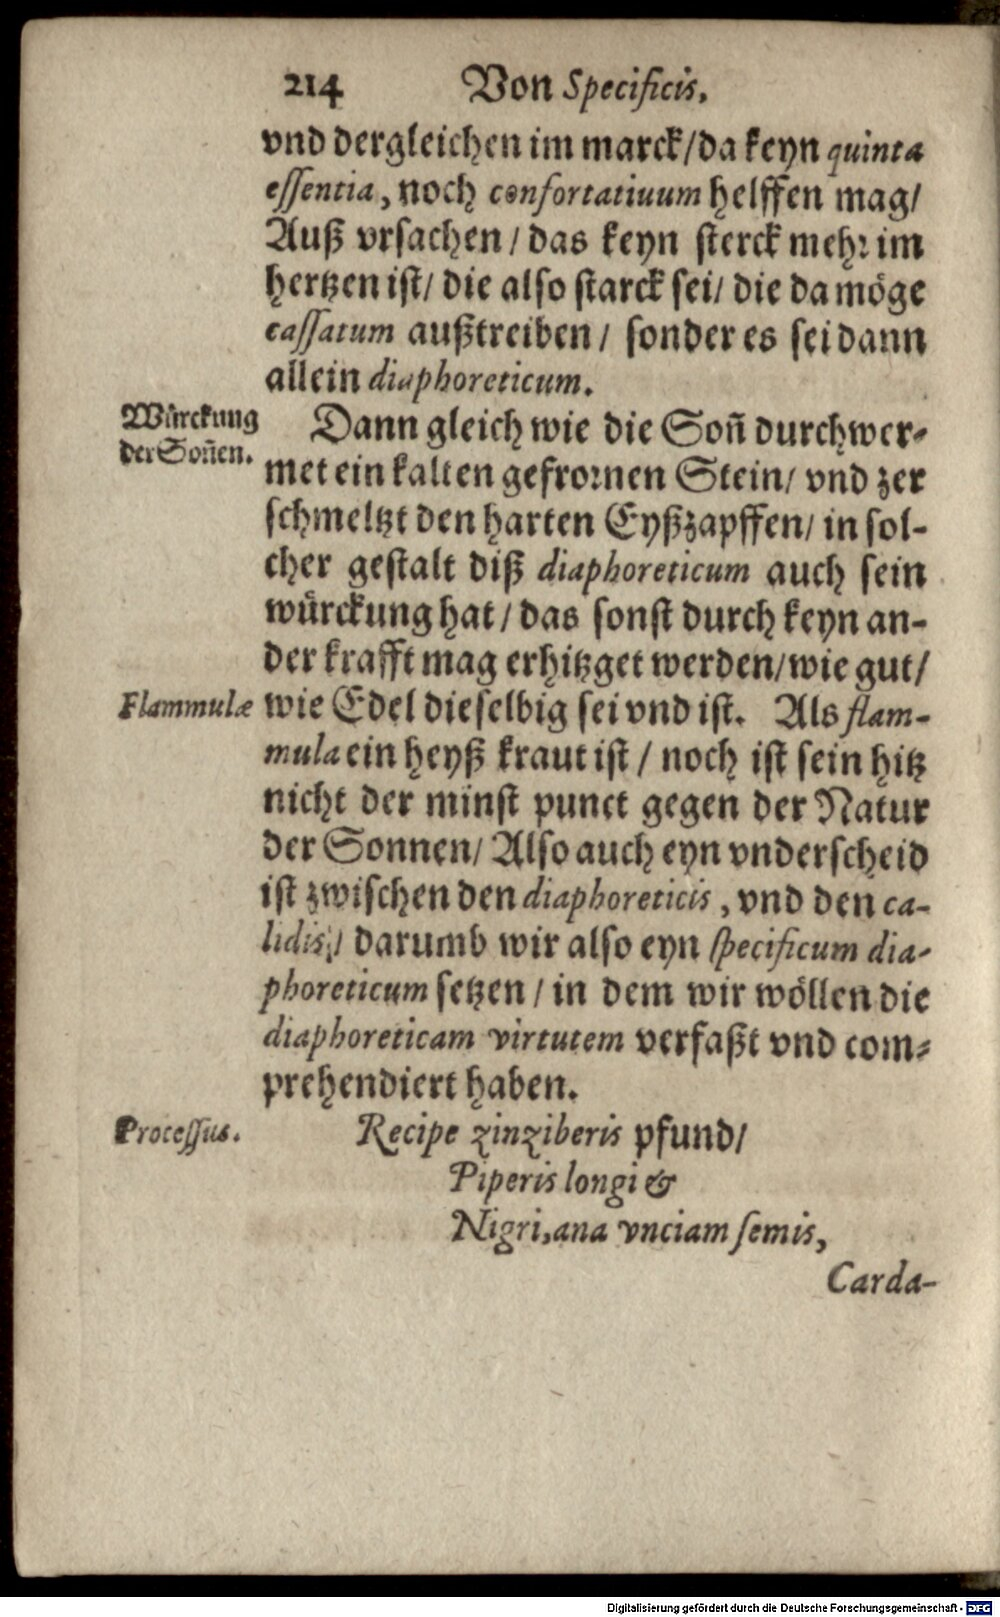 214 Von Specificis.
vnd dergleichen im marck/da keyn quinta
essentia, noch confortatiuum helffen mag/
Auß vrsachen/ das keyn sterck mehr im
hertzen ist/ die also starck sei/ die da möge
cassatum außtreiben/ sonder es sei dann
allein diaphoreticum.
Würckung
der Soñen.
Dann gleich wie die Soñ durchwer-
met ein kalten gefrornen Stein/ vnd zer
schmeltzt den harten Eyßzapffen/ in sol-
cher gestalt diß diaphoreticum auch sein
würckung hat/ das sonst durch keyn an-
der krafft mag erhitzget werden/wie gut/
Flammulæ
wie Edel dieselbig sei vnd ist. Als flam-
mula ein heyß kraut ist/ noch ist sein hitz
nicht der minst punct gegen der Natur
der Sonnen/ Also auch eyn vnderscheid
ist zwischen den diaphoreticis, vnd den ca-
lidis,/ darumb wir also eyn specificum dia-
phoreticum setzen/ in dem wir wöllen die
diaphoreticam virtutem verfaßt vnd com-
prehendiert haben.
Processus.
Recipe zinziberis pfund/
Piperis longi &
Nigri, ana vnciam semis,
Carda-
Digitalisierung gefördert durch die Deutsche Forschungsgemeinschaft - DFG